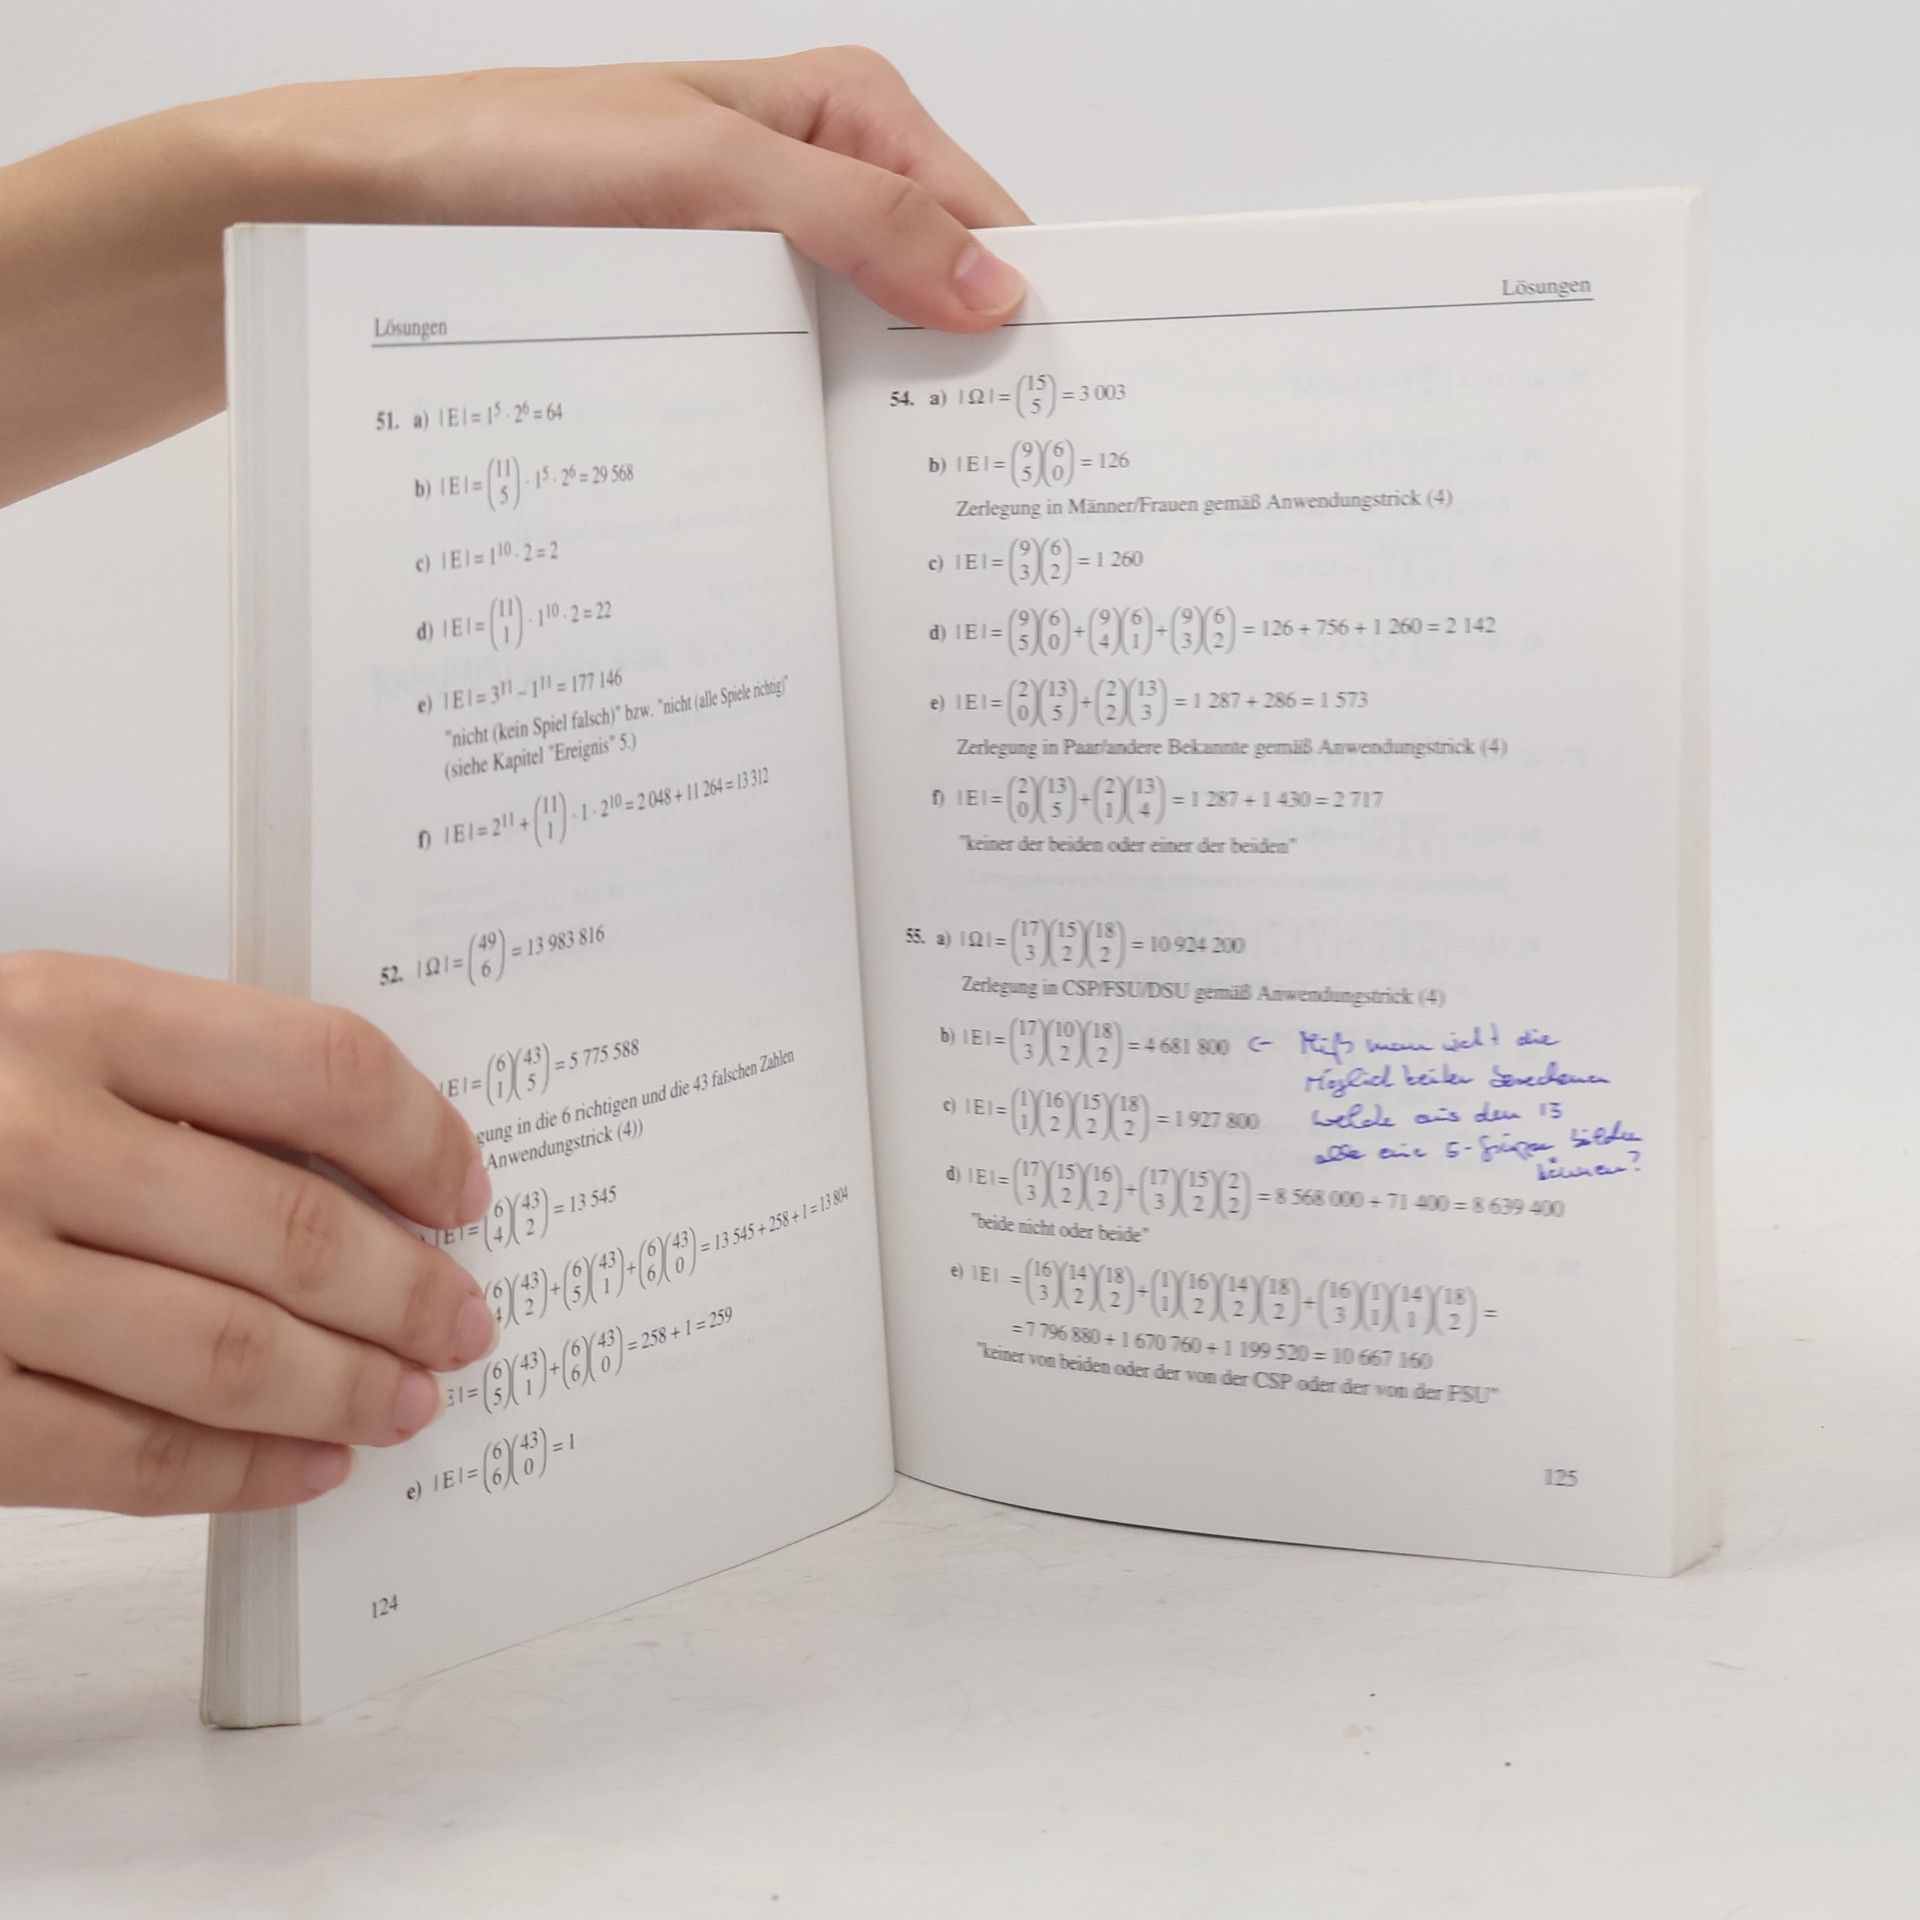 Lösungen
51. a) |E| = 1⁵ · 2⁶ = 64
b) |E| = (11 5) · 1⁵ · 2⁶ = 29 568
c) |E| = 1¹⁰ · 2 = 2
d) |E| = (11 1) · 1¹⁰ · 2 = 22
e) |E| = 3¹¹ – 1¹¹ = 177 146
"nicht (kein Spiel falsch)" bzw. "nicht (alle Spiele richtig)"
(siehe Kapitel "Ereignis" 5.)
f) |E| = 2¹¹ + (11 1) · 1 · 2¹⁰ = 2 048 + 11 264 = 13 312
52. |Ω| = (49 6) = 13 983 816
|E| = (6 1)(43 5) = 5 775 588
gung in die 6 richtigen und die 43 falschen Zahlen
Anwendungstrick (4))
|E| = (6 4)(43 2) = 13 545
(6 4)(43 2) + (6 5)(43 1) + (6 6)(43 0) = 13 545 + 258 + 1 = 13 804
E| = (6 5)(43 1) + (6 6)(43 0) = 258 + 1 = 259
e) |E| = (6 6)(43 0) = 1
124
Lösungen
54. a) |Ω| = (15 5) = 3 003
b) |E| = (9 5)(6 0) = 126
Zerlegung in Männer/Frauen gemäß Anwendungstrick (4)
c) |E| = (9 3)(6 2) = 1 260
d) |E| = (9 5)(6 0) + (9 4)(6 1) + (9 3)(6 2) = 126 + 756 + 1 260 = 2 142
e) |E| = (2 0)(13 5) + (2 2)(13 3) = 1 287 + 286 = 1 573
Zerlegung in Paar/andere Bekannte gemäß Anwendungstrick (4)
f) |E| = (2 0)(13 5) + (2 1)(13 4) = 1 287 + 1 430 = 2 717
"keiner der beiden oder einer der beiden"
55. a) |Ω| = (17 3)(15 2)(18 2) = 10 924 200
Zerlegung in CSP/FSU/DSU gemäß Anwendungstrick (4)
b) |E| = (17 3)(10 2)(18 2) = 4 681 800 ← Muß man nicht die
Möglichkeiten berechnen
welche aus den 13
alle eine 5- bilden
können?
c) |E| = (1 1)(16 2)(15 2)(18 2) = 1 927 800
d) |E| = (17 3)(15 2)(16 2) + (17 3)(15 2)(2 2) = 8 568 000 + 71 400 = 8 639 400
"beide nicht oder beide"
e) |E| = (16 3)(14 2)(18 2) + (1 1)(16 2)(14 2)(18 2) + (16 3)(1 1)(14 1)(18 2) =
= 7 796 880 + 1 670 760 + 1 199 520 = 10 667 160
"keiner von beiden oder der von der CSP oder der von der FSU"
125